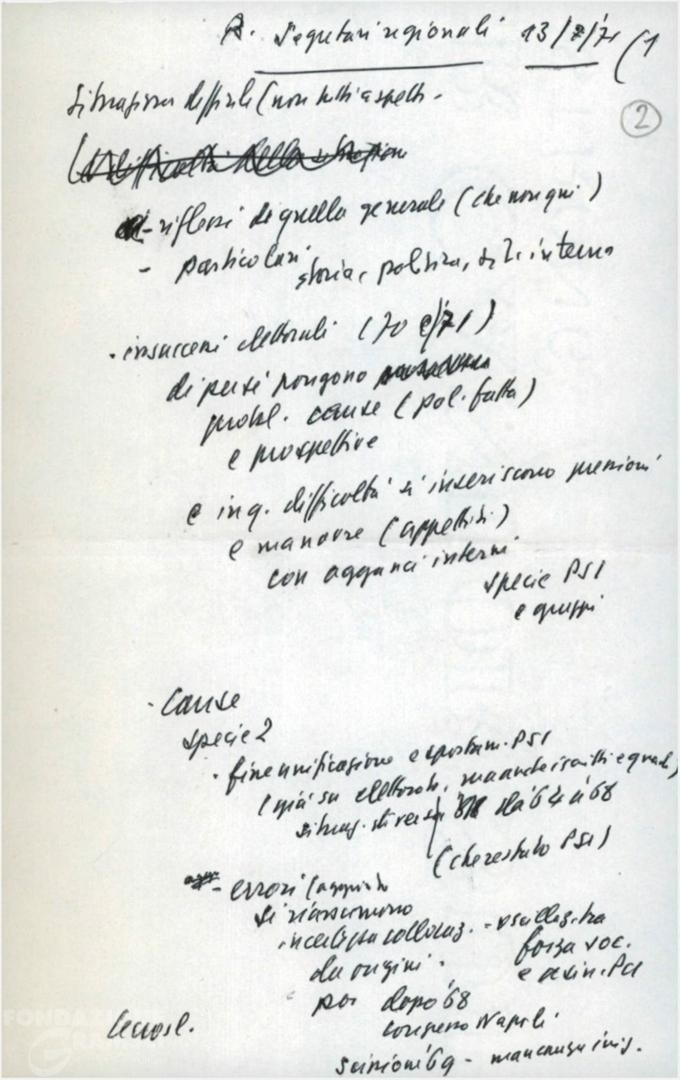 A. Segretari regionali 13/7/71 (1
2
Situazione difficile (non tutti aspetti -
- riflessi di quella generale (che non qui)
- particolari
storia, politica, interna
- insuccessi elettorali (70 e/71)
di per sé pongono
probl. cause (pol. fatta)
e prospettive
e in q. difficoltà si inseriscono pressioni
e manovre (appetiti)
con agganci interni
specie PSI
e gruppi
- Cause
specie 2
- fine unificazione e spostam. PSI
(già su elettorato, ma anche iscritti e quadri)
situaz. diversa da 64 a 68
(che restato PSI)
- errori (aggiunto
si riassumono
incertezza collocaz. - oscillaz. tra
forza soc.
da origini - e assim. PCI
poi dopo '68
congresso Napoli
scissioni '69 -
FONDAZIONE